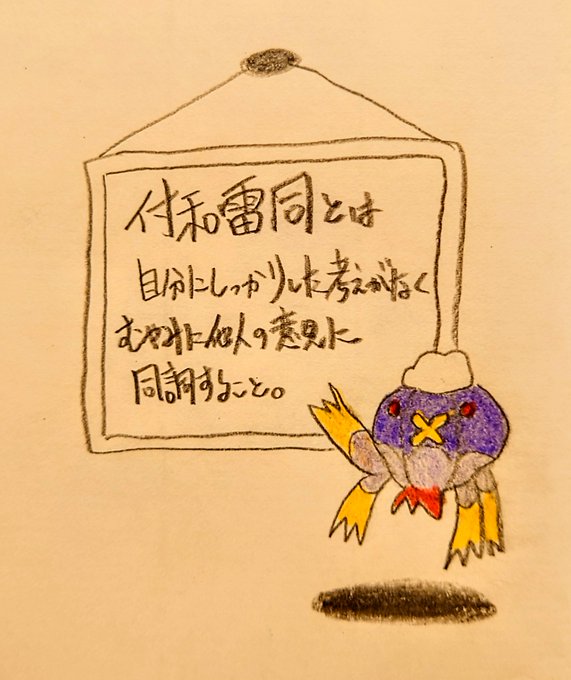 付和雷同とは
自分にしっかりした考えがなく
むやみに他人の意見に
同調すること。